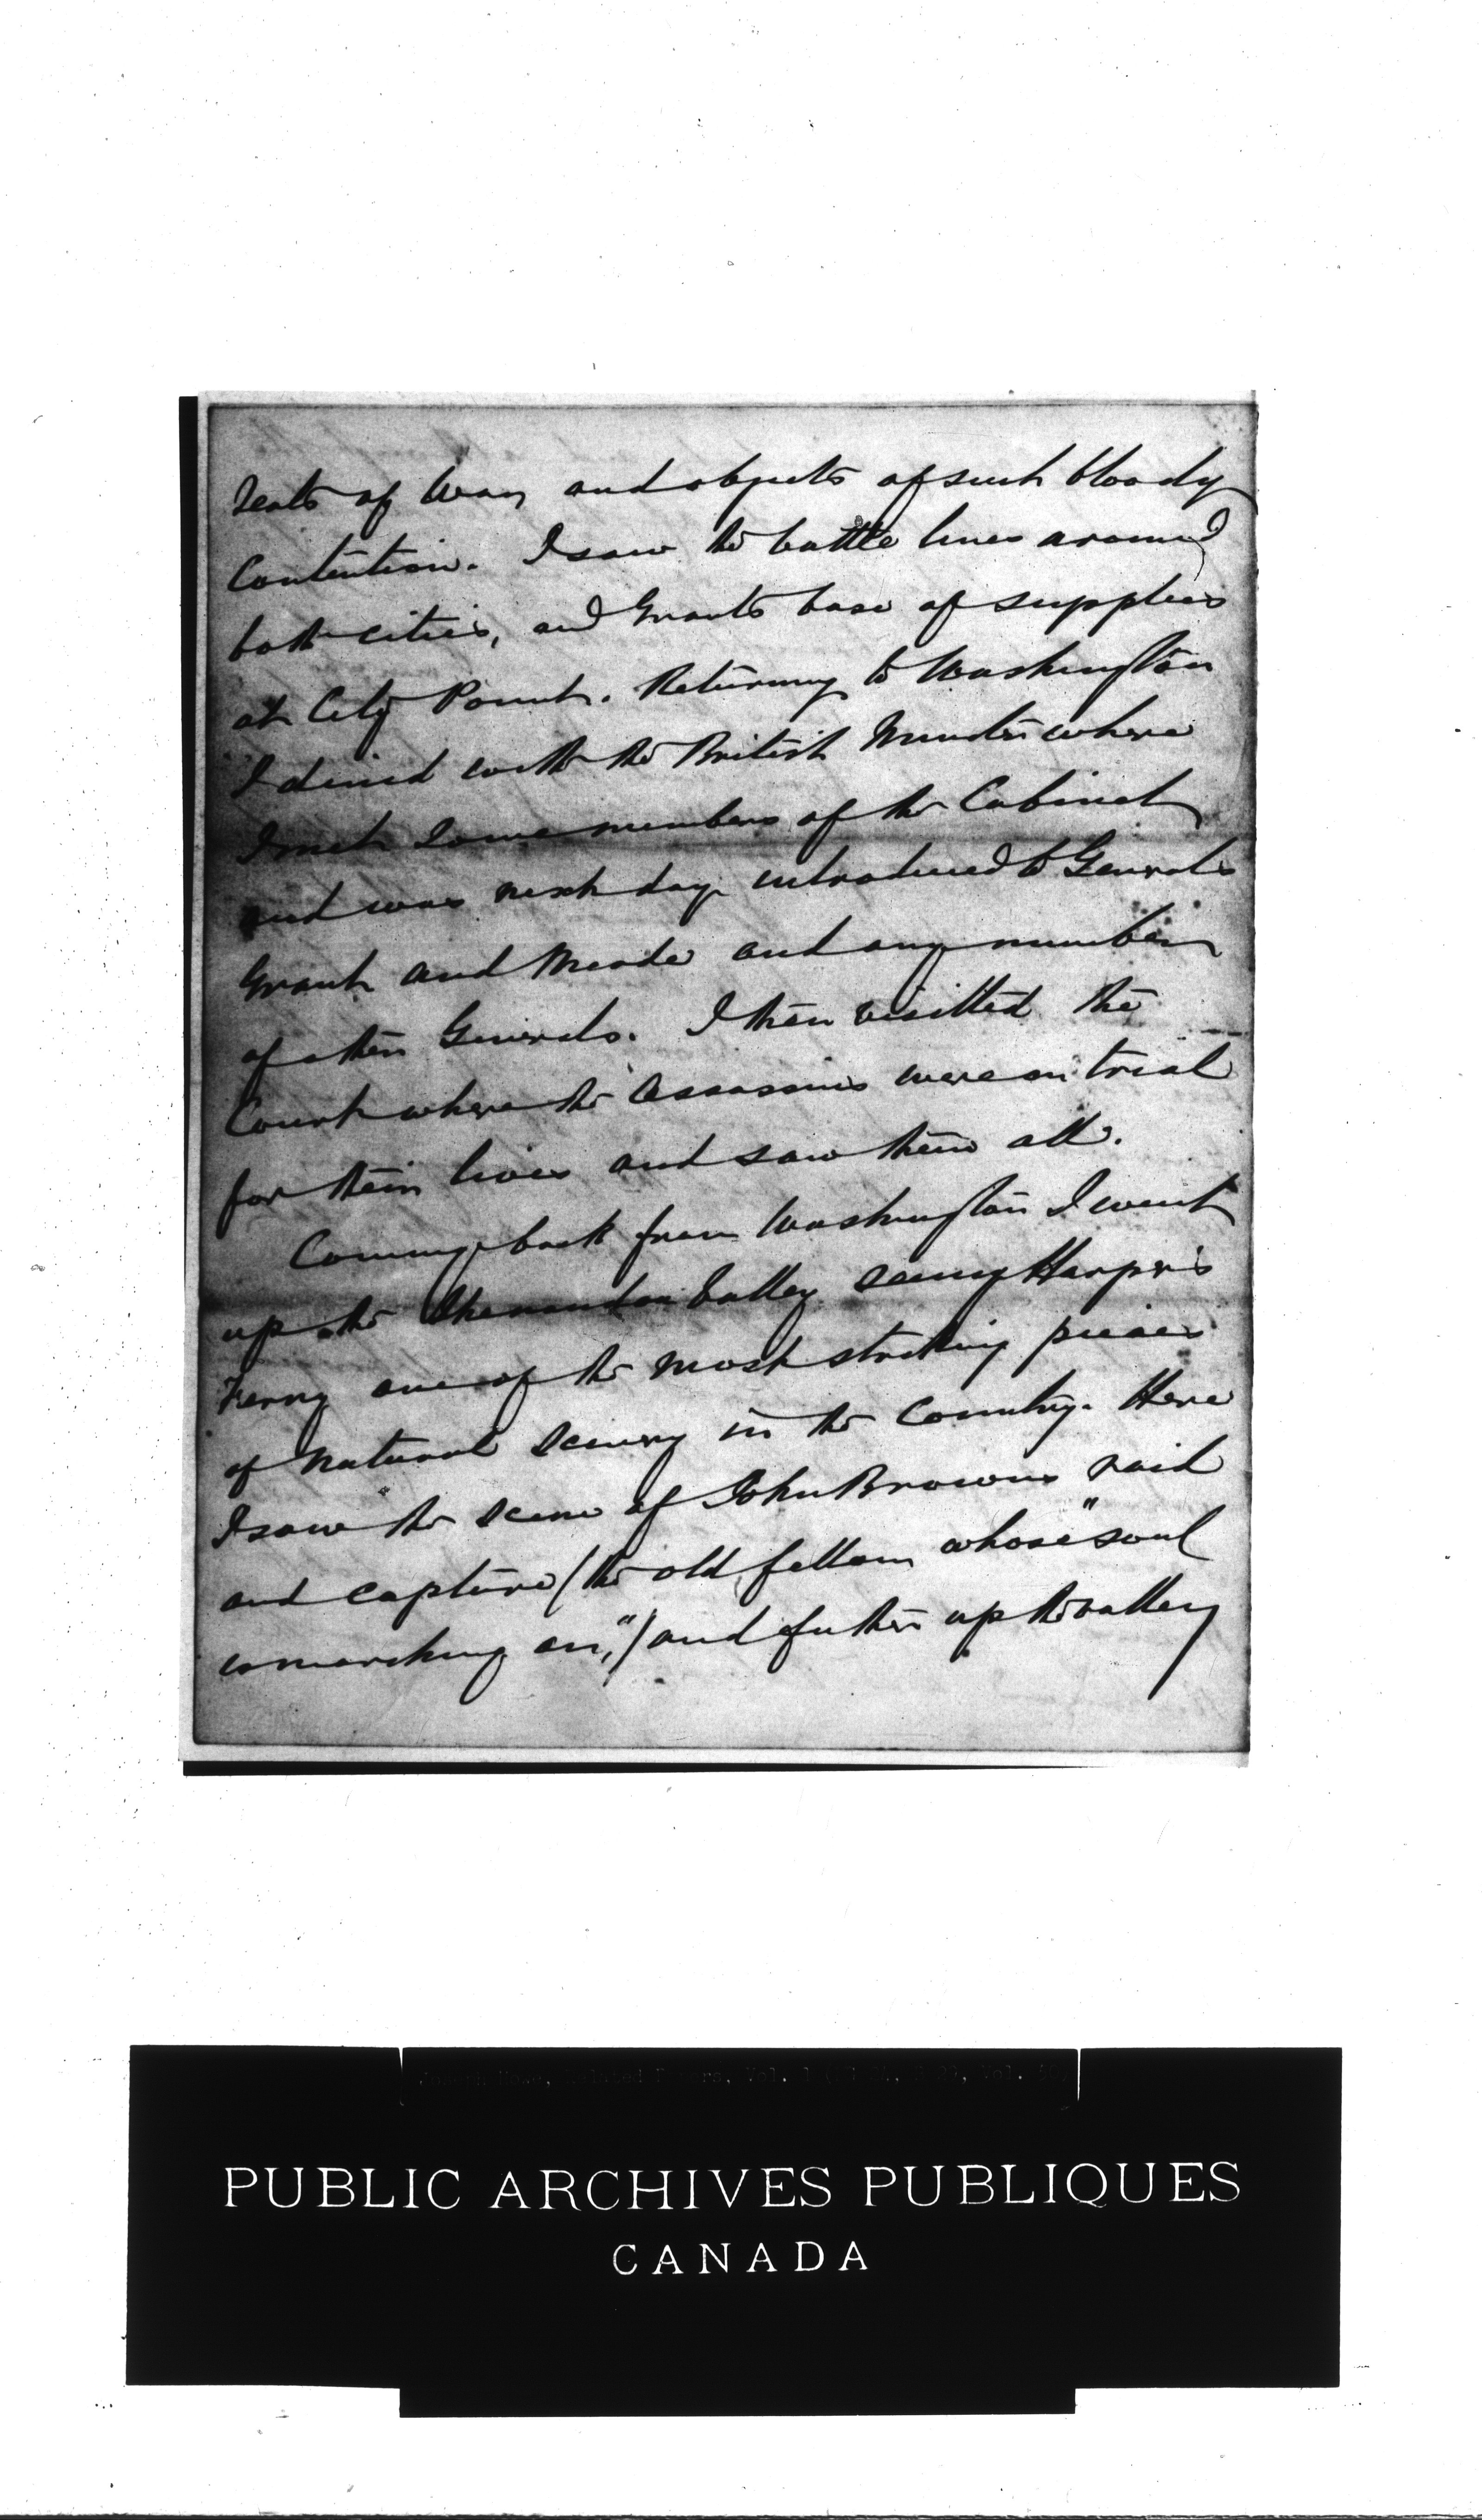 Seats of War, and objects of such bloody
Contention. I saw the battle lines around
both cities, and Grants base of supplies
at City Point. Returning to Washington
I dined with the British Minister where
I met some members of the Cabinet
and was next day introduced to Generals
Grant and Meade and any number
of other Generals. I then visitted the
Court where the assassins were on trial
for their lives and saw them all.
Coming back from Washington I went
up the Shenandoa Valley seeing Harper's
Ferry one of the most striking pieces
of natural scenery in the Country. Here
I saw the scene of John Browns raid
and capture (the old fellow whose "soul
is marching on,") and futher up the valley
Joseph Howe, Related Papers, Vol. 1
PUBLIC ARCHIVES PUBLIQUES
CANADA